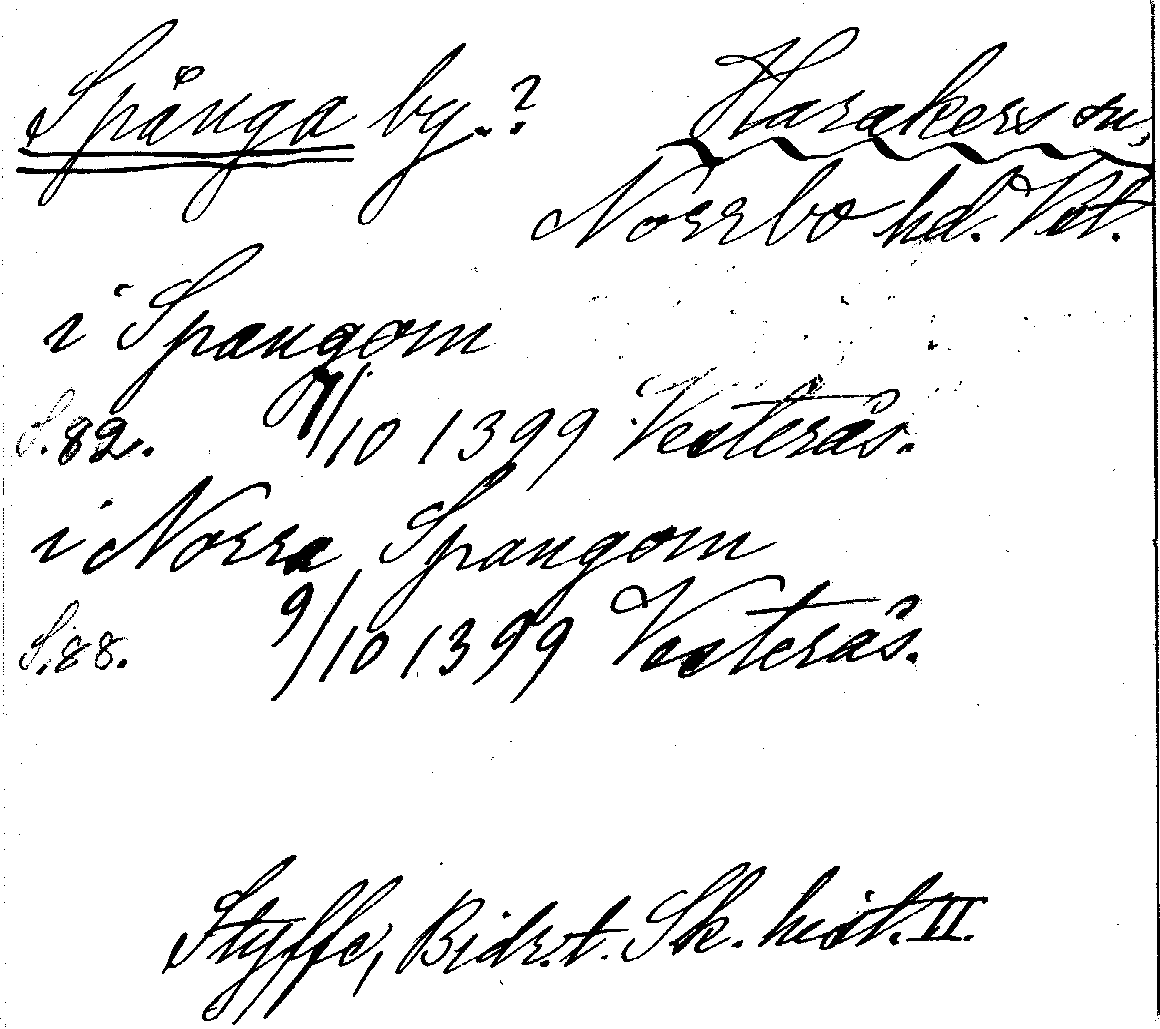 Spånga by.? Harakers sn,
Norrbo hd. Vstl.
i Spangom
S.82. 9/10 1399 Vesterås.
i Norra Spangom
S.88. 9/10 1399 Vesterås.
Styffe, Bidr. t. Sk. hist. II.